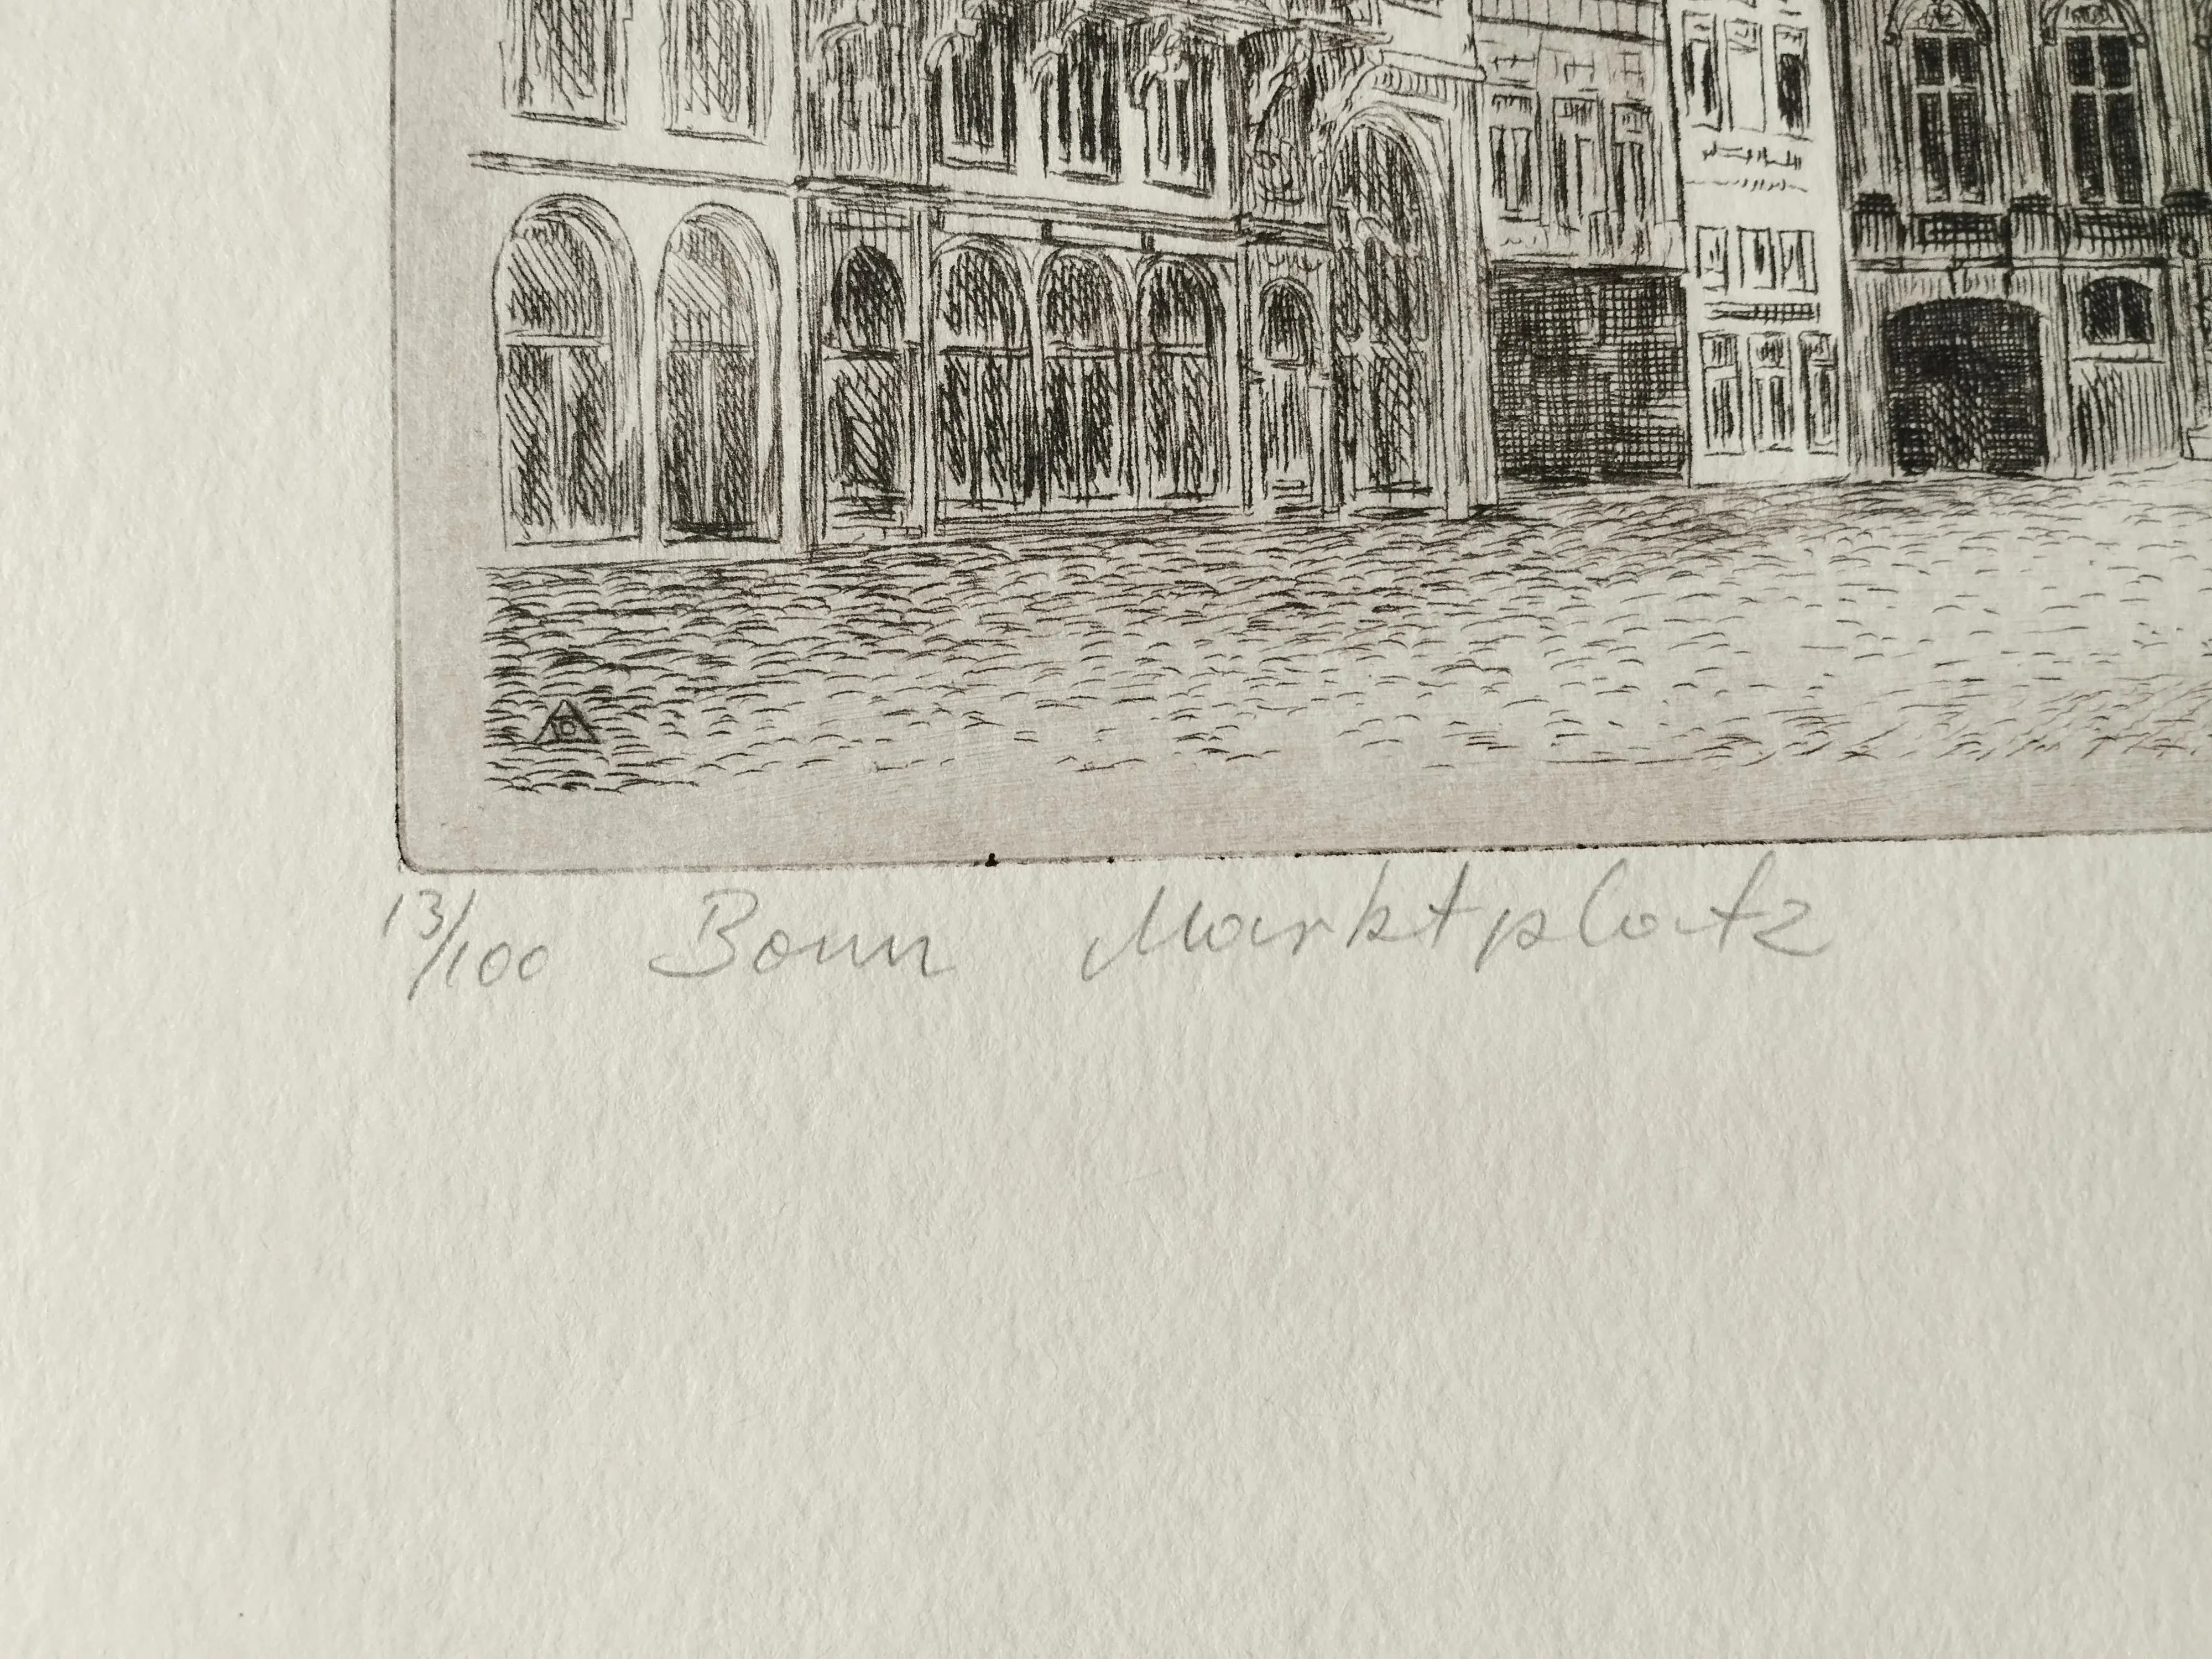 13/100 Bonn Marktplatz